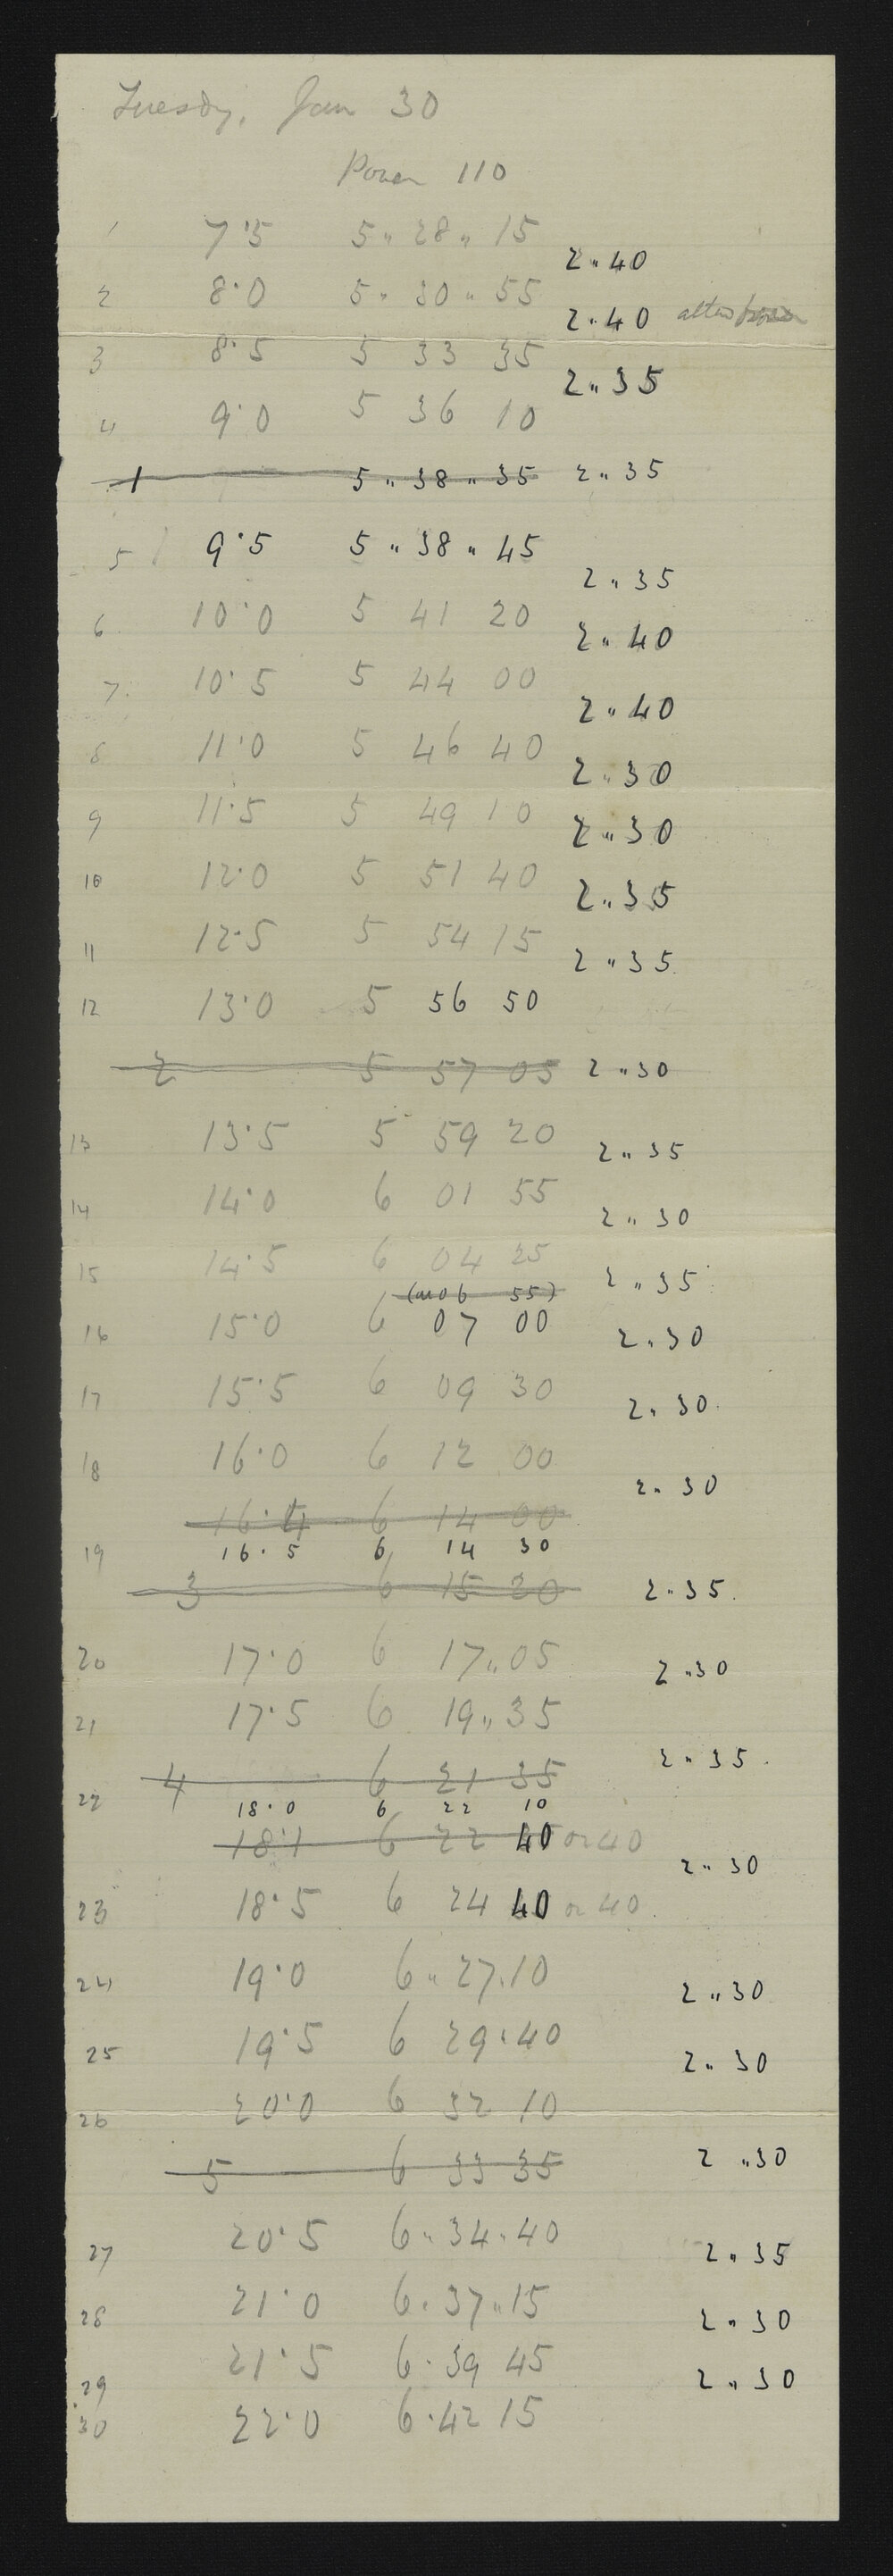 Tuesday, Jan 30
Power 110
1 7·5 5 " 28 " 15
2 " 40
2 8·0 5 " 30 " 55
2 " 40
3 8·5 5 33 35
2 " 35
4 9·0 5 36 10
1 5 " 38 " 35 2 " 35
5 9·5 5 " 38 " 45
2 " 35
6 10·0 5 41 20
2 " 40
7 10·5 5 44 00
2 " 40
8 11·0 5 46 40
2 " 30
9 11·5 5 49 10
2 " 30
10 12·0 5 51 40
2 " 35
11 12·5 5 54 15
2 " 35
12 13·0 5 56 50
2 5 57 05 2 " 30
13 13·5 5 59 20
2 " 35
14 14·0 6 01 55
2 " 30
15 14·5 6 04 25
2 " 35
55)
16 15·0 6 07 00
2 " 30
17 15·5 6 09 30
2 " 30
18 16·0 6 12 00
2 " 30
16·4 6 14 00
19 16·5 6 14 30
3 6 15 20 2 " 35
20 17·0 6 17 " 05
2 " 30
21 17·5 6 19 " 35
2 " 35
4 6 21 35
22 18·0 6 22 10
18·1 6 22 40 or 40
2 " 30
23 18·5 6 24 40 or 40
24 19·0 6 " 27 " 10
2 " 30
25 19·5 6 29 · 40
2 " 30
26 20·0 6 32 10
5 6 33 35 2 " 30
27 20·5 6 " 34 " 40
2 " 35
28 21·0 6 " 37 " 15
2 " 30
29 21·5 6 · 39 45
2 " 30
30 22·0 6 · 42 15